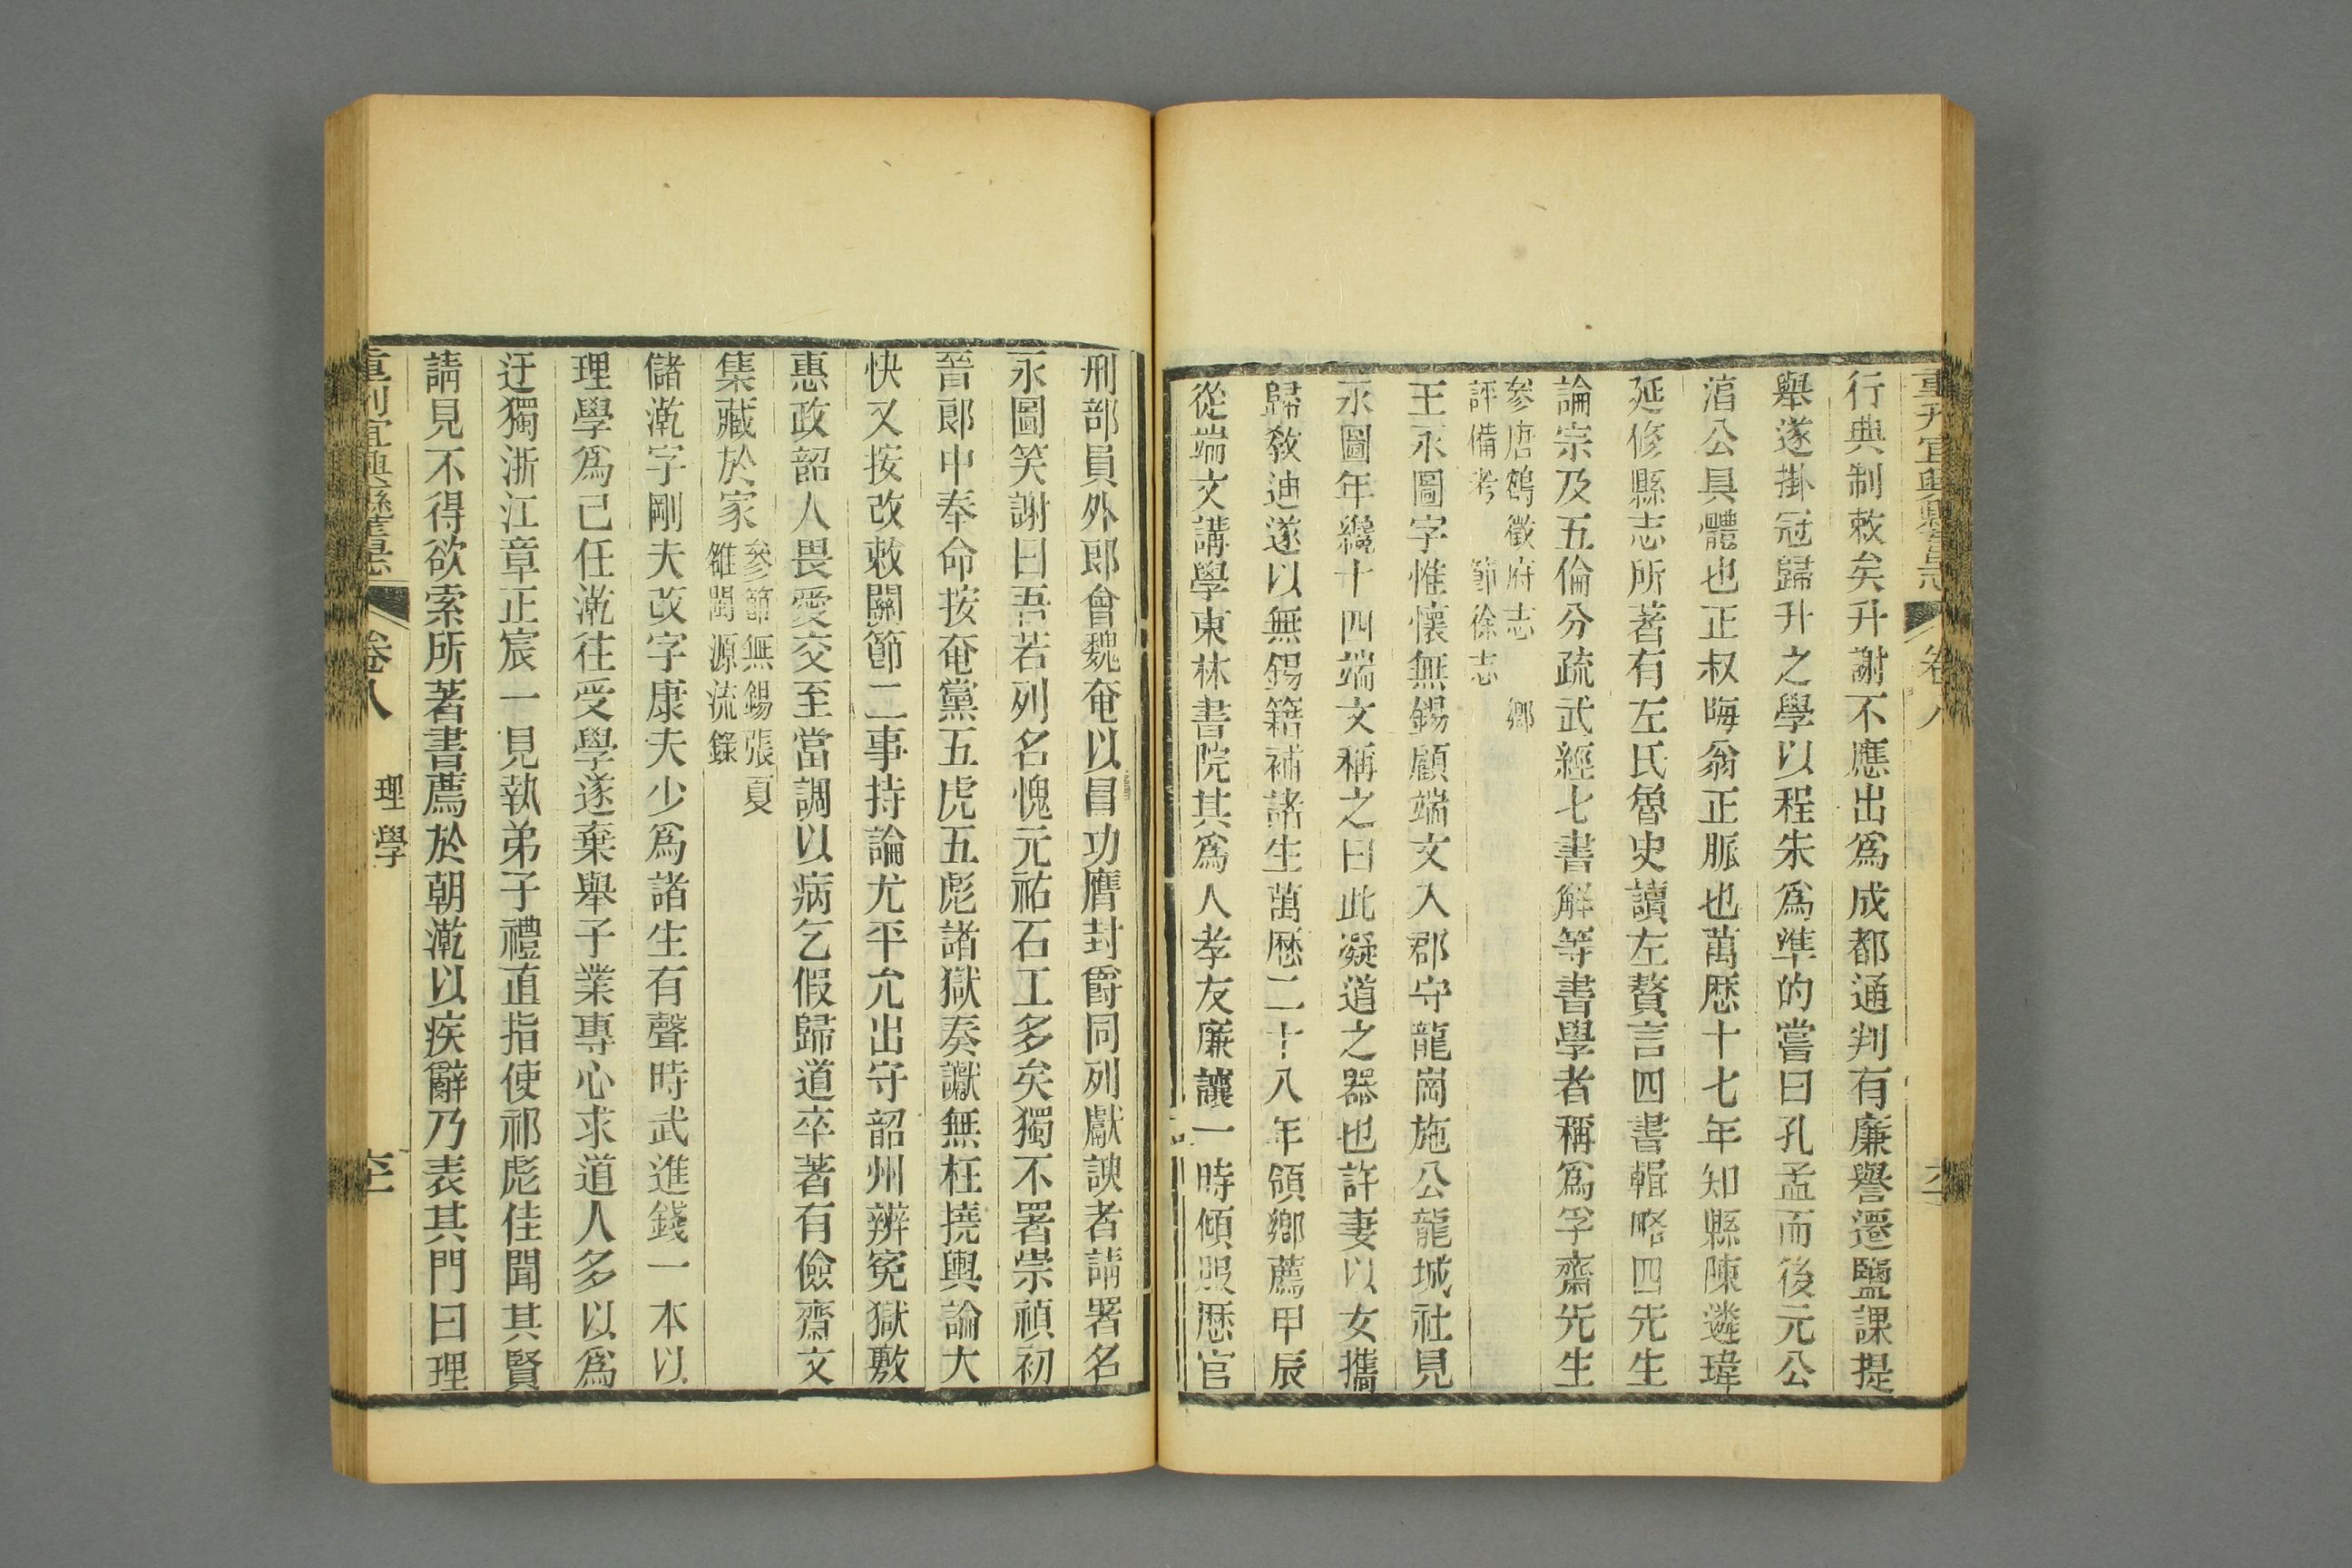 重刊宜興縣舊志 卷八
行典制敕矣升謝不應出爲成都通判有廉譽遷鹽課提
舉遂掛冠歸升之學以程朱爲準的嘗曰孔孟而後元公
淯公具體也正叔晦翁正脈也萬厯十七年知縣陳遴瑋
延修縣志所著有左氏魯史讀左贅言四書輯略四先生
論宗及五倫分疏武經七書解等書學者稱爲孚齋先生
參唐鶴徵府志 鄉
評備考 節徐志
王永圖字惟懷無錫顧端文入郡守龍崗施公龍城社見
永圖年纔十四端文稱之曰此凝道之器也許妻以女攜
歸敎迪遂以無錫籍補諸生萬厯二十八年領鄉薦甲辰
從端文講學東林書院其爲人孝友廉讓一時傾服厯官
刑部員外郎會魏奄以冒功膺封爵同列獻諛者請署名
永圖笑謝曰吾若列名愧元祐石工多矣獨不署崇禎初
晉郎中奉命按奄黨五虎五彪諸獄奏讞無枉撓輿論大
快又按改敕關節二事持論尤平允出守韶州辨冤獄敷
惠政韶人畏愛交至當調以病乞假歸道卒著有儉齋文
集藏於家 參節無錫張夏
雒閩源流錄
儲漧字剛夫改字康夫少爲諸生有聲時武進錢一本以
理學爲己任漧往受學遂棄舉子業專心求道人多以爲
迂獨浙江章正宸一見執弟子禮直指使祁彪佳聞其賢
請見不得欲索所著書薦於朝漧以疾辭乃表其門曰理
重刊宜興縣舊志 卷八 理學